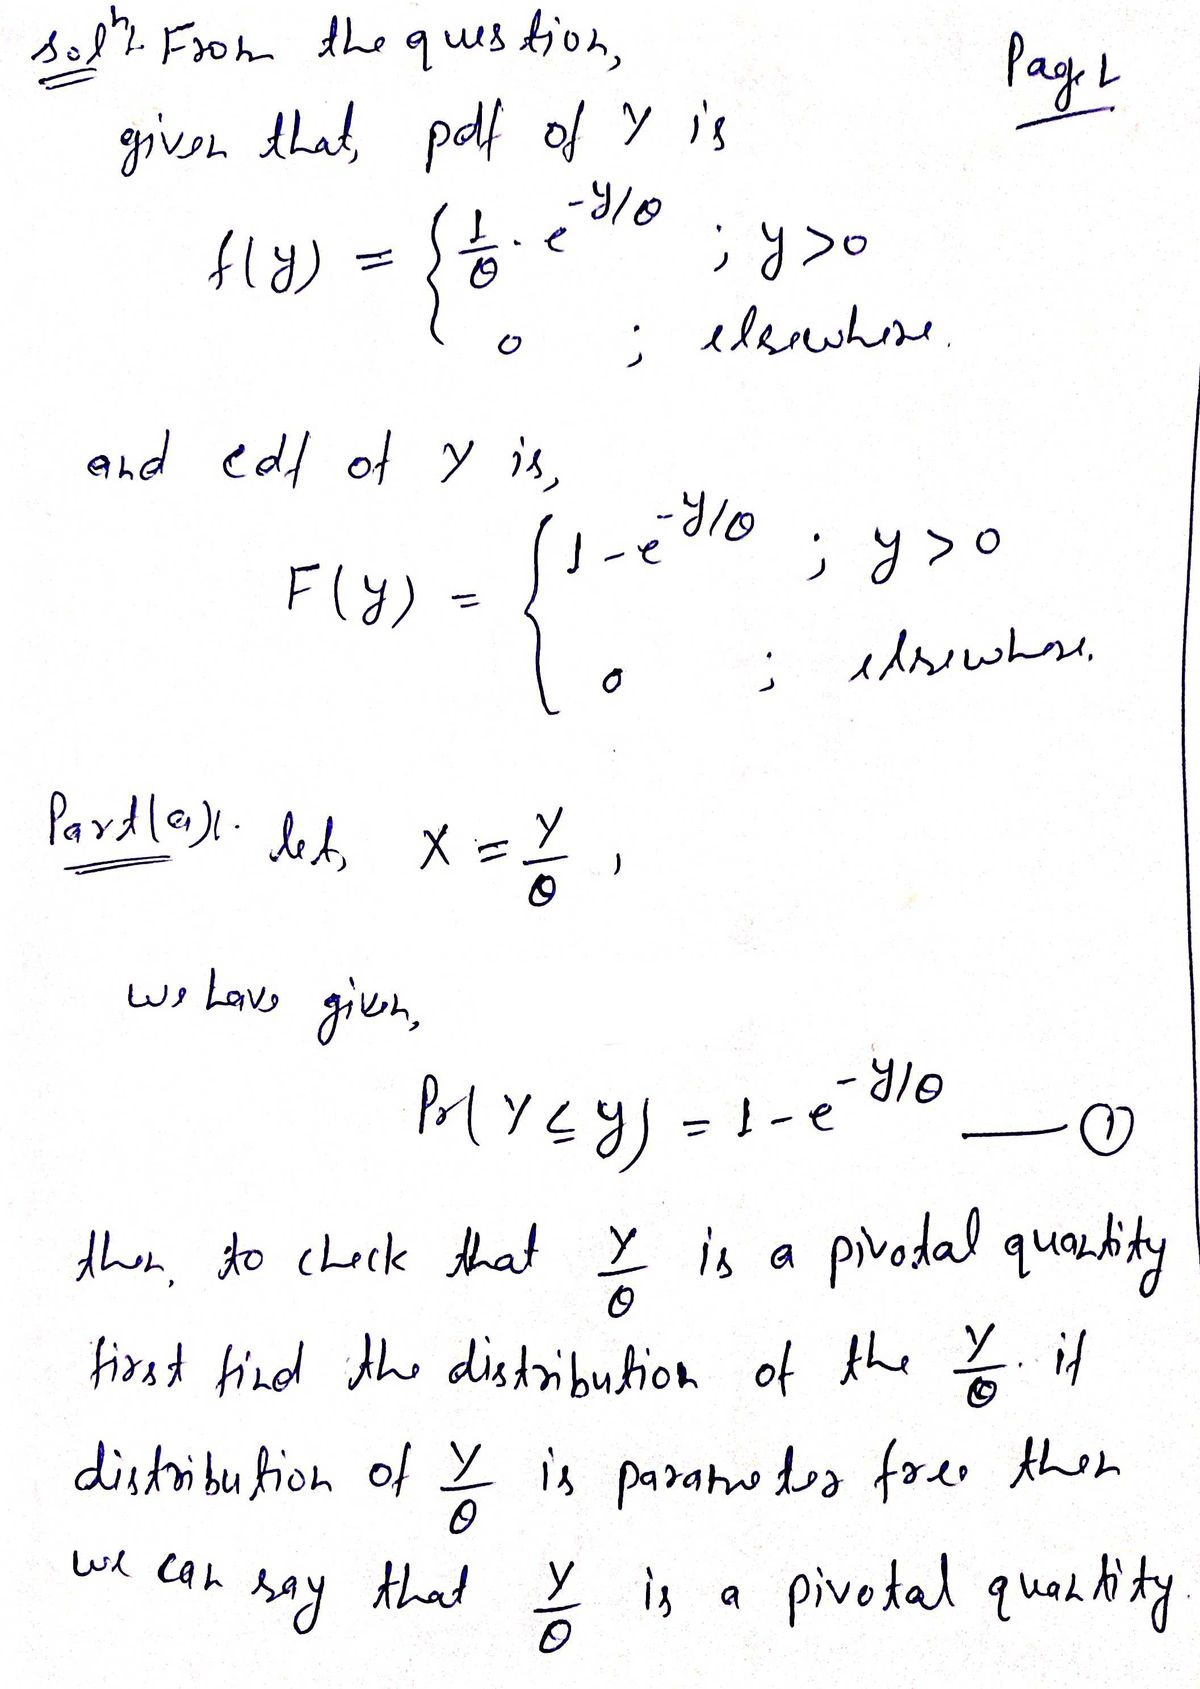 Solⁿ: From the question,
Page 1
given that, pdf of Y is
f(y) = { 1/θ · e^(-y/θ) ; y>0
0 ; elsewhere.
and cdf of Y is,
F(y) = { 1-e^(-y/θ) ; y>0
0 ; elsewhere.
Part(a):- let, X = Y/θ ,
we have given,
Pr(Y≤y) = 1-e^(-y/θ) —— ①
then, to check that Y/θ is a pivotal quantity
first find the distribution of the Y/θ. if
distribution of Y/θ is parameter free then
we can say that Y/θ is a pivotal quantity.